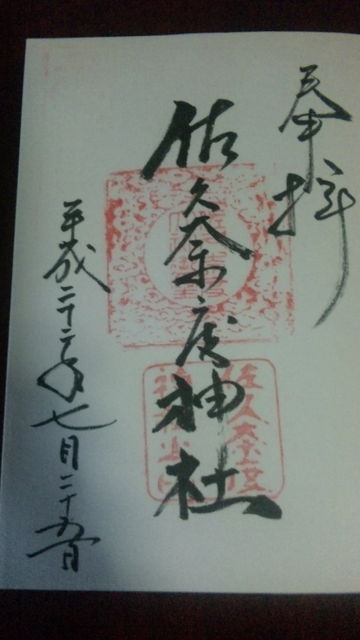 奉拝
佐久奈度神社
平成二十二年七月二十五日